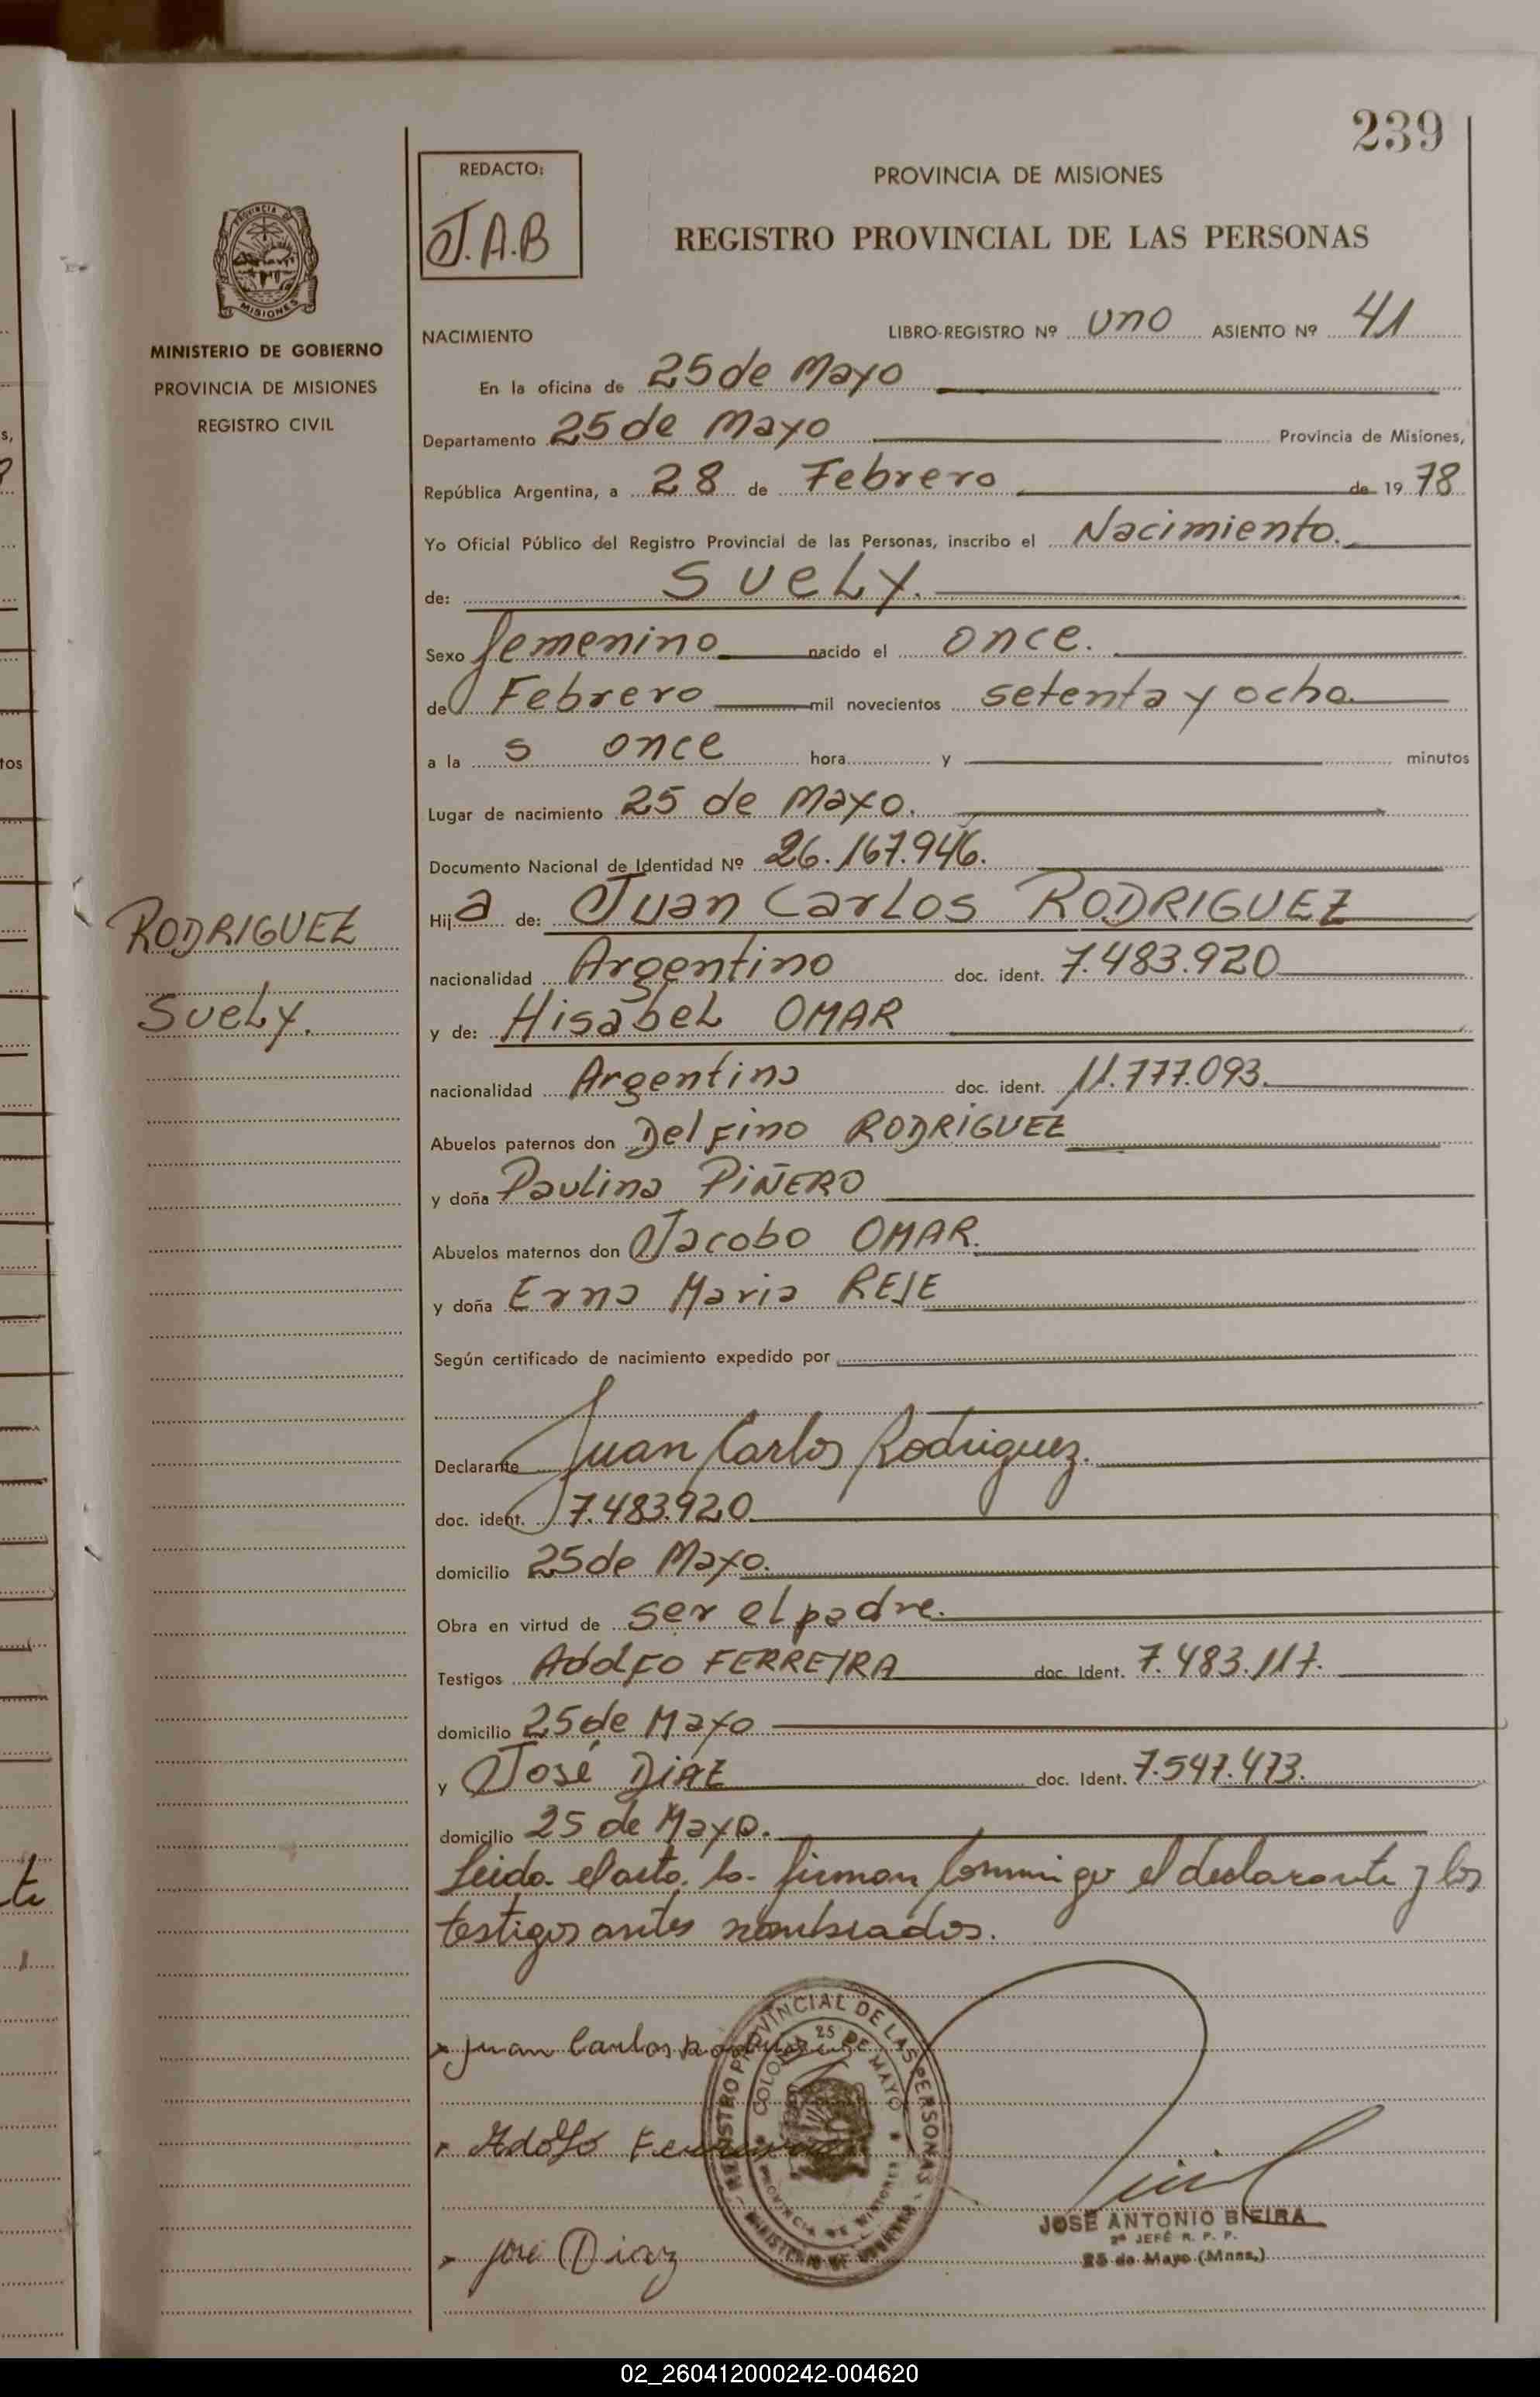 239
REDACTO:
J.A.B
PROVINCIA DE MISIONES
REGISTRO PROVINCIAL DE LAS PERSONAS
PROVINCIA DE
MISIONES
MINISTERIO DE GOBIERNO
PROVINCIA DE MISIONES
REGISTRO CIVIL
NACIMIENTO
LIBRO-REGISTRO Nº uno ASIENTO Nº 41
En la oficina de 25 de Mayo
Departamento 25 de Mayo Provincia de Misiones,
República Argentina, a 28 de Febrero de 1978
Yo Oficial Público del Registro Provincial de las Personas, inscribo el Nacimiento.
de: SUELY.
Sexo femenino nacido el once.
de Febrero mil novecientos setenta y ocho.
a la s once hora y minutos
Lugar de nacimiento 25 de Mayo.
Documento Nacional de Identidad Nº 26.167.946.
Hija de: Juan Carlos RODRIGUEZ
RODRIGUEZ
nacionalidad Argentino doc. ident. 7.483.920
Suely.
y de: Hisabel OMAR
nacionalidad Argentina doc. ident. 11.777.093.
Abuelos paternos don Delfino RODRIGUEZ
y doña Paulina PIÑERO
Abuelos maternos don Jacobo OMAR.
y doña Erna Maria
Según certificado de nacimiento expedido por
Declarante Juan Carlos Rodriguez.
doc. ident. 7.483.920
domicilio 25 de Mayo.
Obra en virtud de ser el padre.
Testigos Adolfo FERREIRA doc. Ident. 7.483.117.
domicilio 25 de Mayo
y José DIAZ doc. Ident. 7.547.473.
domicilio 25 de Mayo.
Leida el acta, la firman conmigo el declarante y los
testigos antes nombrados.
REGISTRO PROVINCIAL DE LAS PERSONAS
COLONIA 25 DE MAYO
PROVINCIA DE MISIONES
MINISTERIO DE GOBIERNO
Juan Carlos Rodriguez
Adolfo Ferreira
José Diaz
JOSE ANTONIO BIEIRA
2º JEFE R. P. P.
25 de Mayo (Mnes.)
02_260412000242-004620